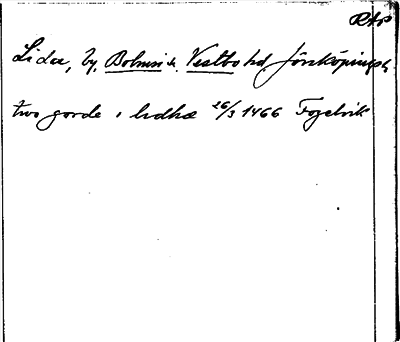 RAp
Lida, by, Bolmsö s. Västbo hd. Jönköpings l.
two gorde i lidhæ 26/3 1466 Fogelvik